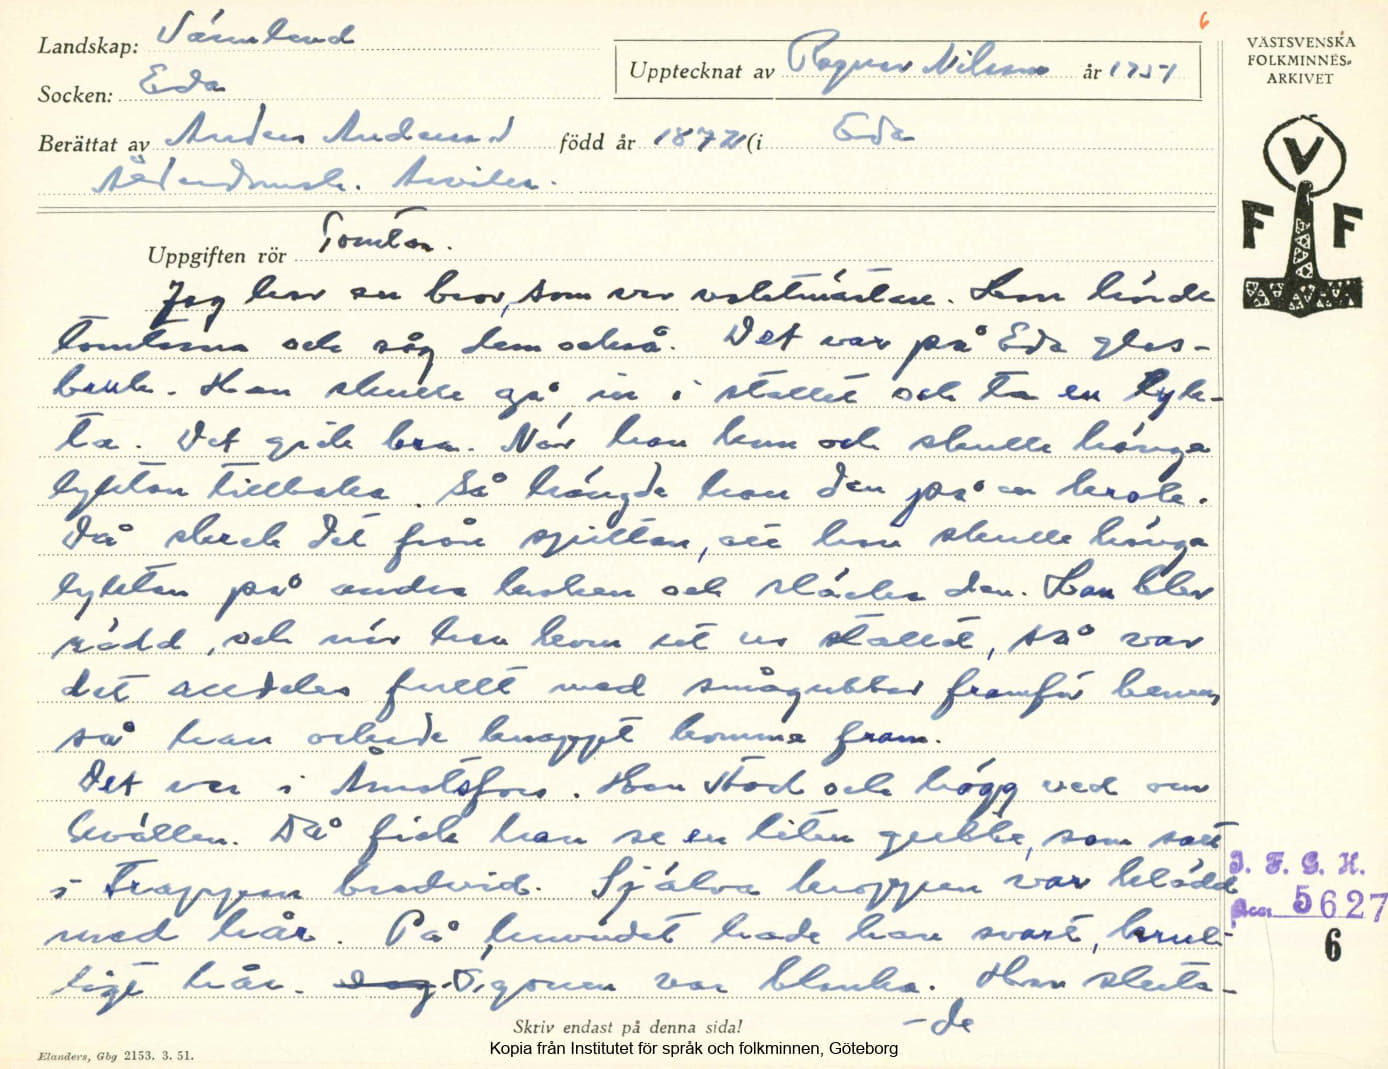 6
Landskap: Värmland
Socken: Eda
Upptecknat av Ragnar Nilsson år 1951
VÄSTSVENSKA
FOLKMINNES-
ARKIVET
V
F F
Berättat av Anders Andersson född år 1872 (i Eda
Ålderdomsh. Arvika.
Uppgiften rör Tomtar.
Jag har en bror, som var vaktmästare. Han hörde
tomtarna och såg dem också. Det var på Eda glas-
bruk. Han skulle gå in i stallet och ta en lyk-
ta. Det gick bra. När han kom och skulle hänga
lyktan tillbaka. Så hängde han den på en krok.
Då skrek det från spiltan, att han skulle hänga
lyktan på andra kroken och släcka den. Han blev
rädd, och när han kom ut ur stallet, så var
det alldeles fullt med smågubbar framför benen,
så han orkade knappt komma fram.
Det var i Åmotsfors. Han stod och högg ved om
kvällen. Då fick han se en liten gubbe, som satt
i trappen bredvid. Själva kroppen var klädd
med hår. På huvudet hade han svart, krul-
ligt hår. Ögonen var blanka. Han sluta-
-de
I. F. G. H.
Acc. 5627
6
Skriv endast på denna sida!
Kopia från Institutet för språk och folkminnen, Göteborg
Elanders, Gbg 2153. 3. 51.